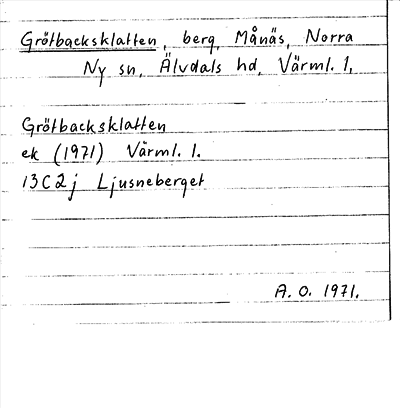 Grötbacksklatten, berg, Månäs, Norra
Ny sn, Älvdals hd, Värml. l,
Grötbacksklatten
ek (1971) Värml. l.
13C2j Ljusneberget
A. O. 1971.